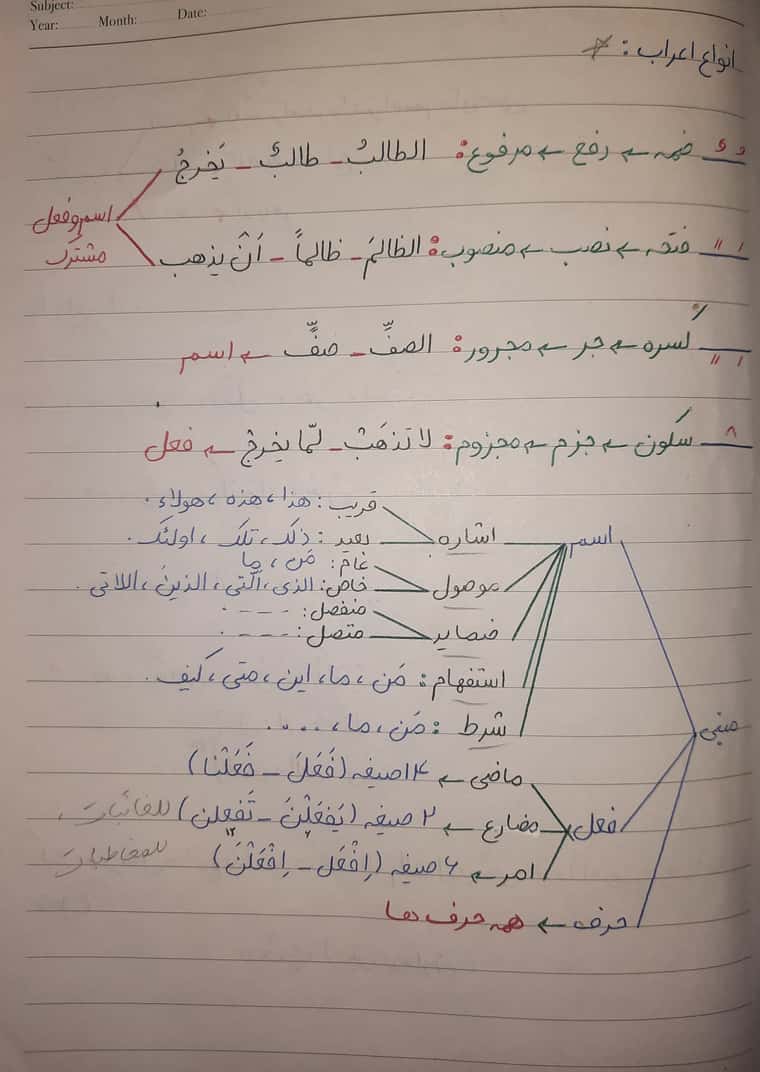 Subject:
Year: Month: Date:
انواع اعراب :
ُ ٌ ضمه ← رفع ← مرفوع : الطالبُ - طالبٌ - یَخرجُ
اسم و فعل
مشترک
َ ً فتحه ← نصب ← منصوب : الظالمَ - ظالماً - اَنْ یذهب
ِ ٍ کسره ← جر ← مجرور : الصفِّ - صفٍّ ← اسم
ْ سکون ← جزم ← مجزوم : لا تذهَبْ - لمّا یخرجْ ← فعل
مبنی
اسم
اشاره
قریب : هذا ، هذه ، هولاء .
بعید : ذلک ، تلک ، اولئک .
موصول
عام : مَن ، ما
خاص : الذی ، الّتی ، الذینَ ، اللاتی .
ضمایر
منفصل : - - - .
متصل : - - - .
استفهام : مَن ، ما ، این ، متی ، کیف .
شرط : مَن ، ما ، ....
فعل
ماضی ← ۱۴ صیغه (فَعَلَ - فَعَلْنا)
مضارع ← ۲ صیغه (یَفعَلْنَ - تَفعلن) للغائبات ،
۱۲
امر ← ۶ صیغه (اِفْعَل - اِفْعَلْنَ) للمخاطبات
حرف ← همه حرف ها